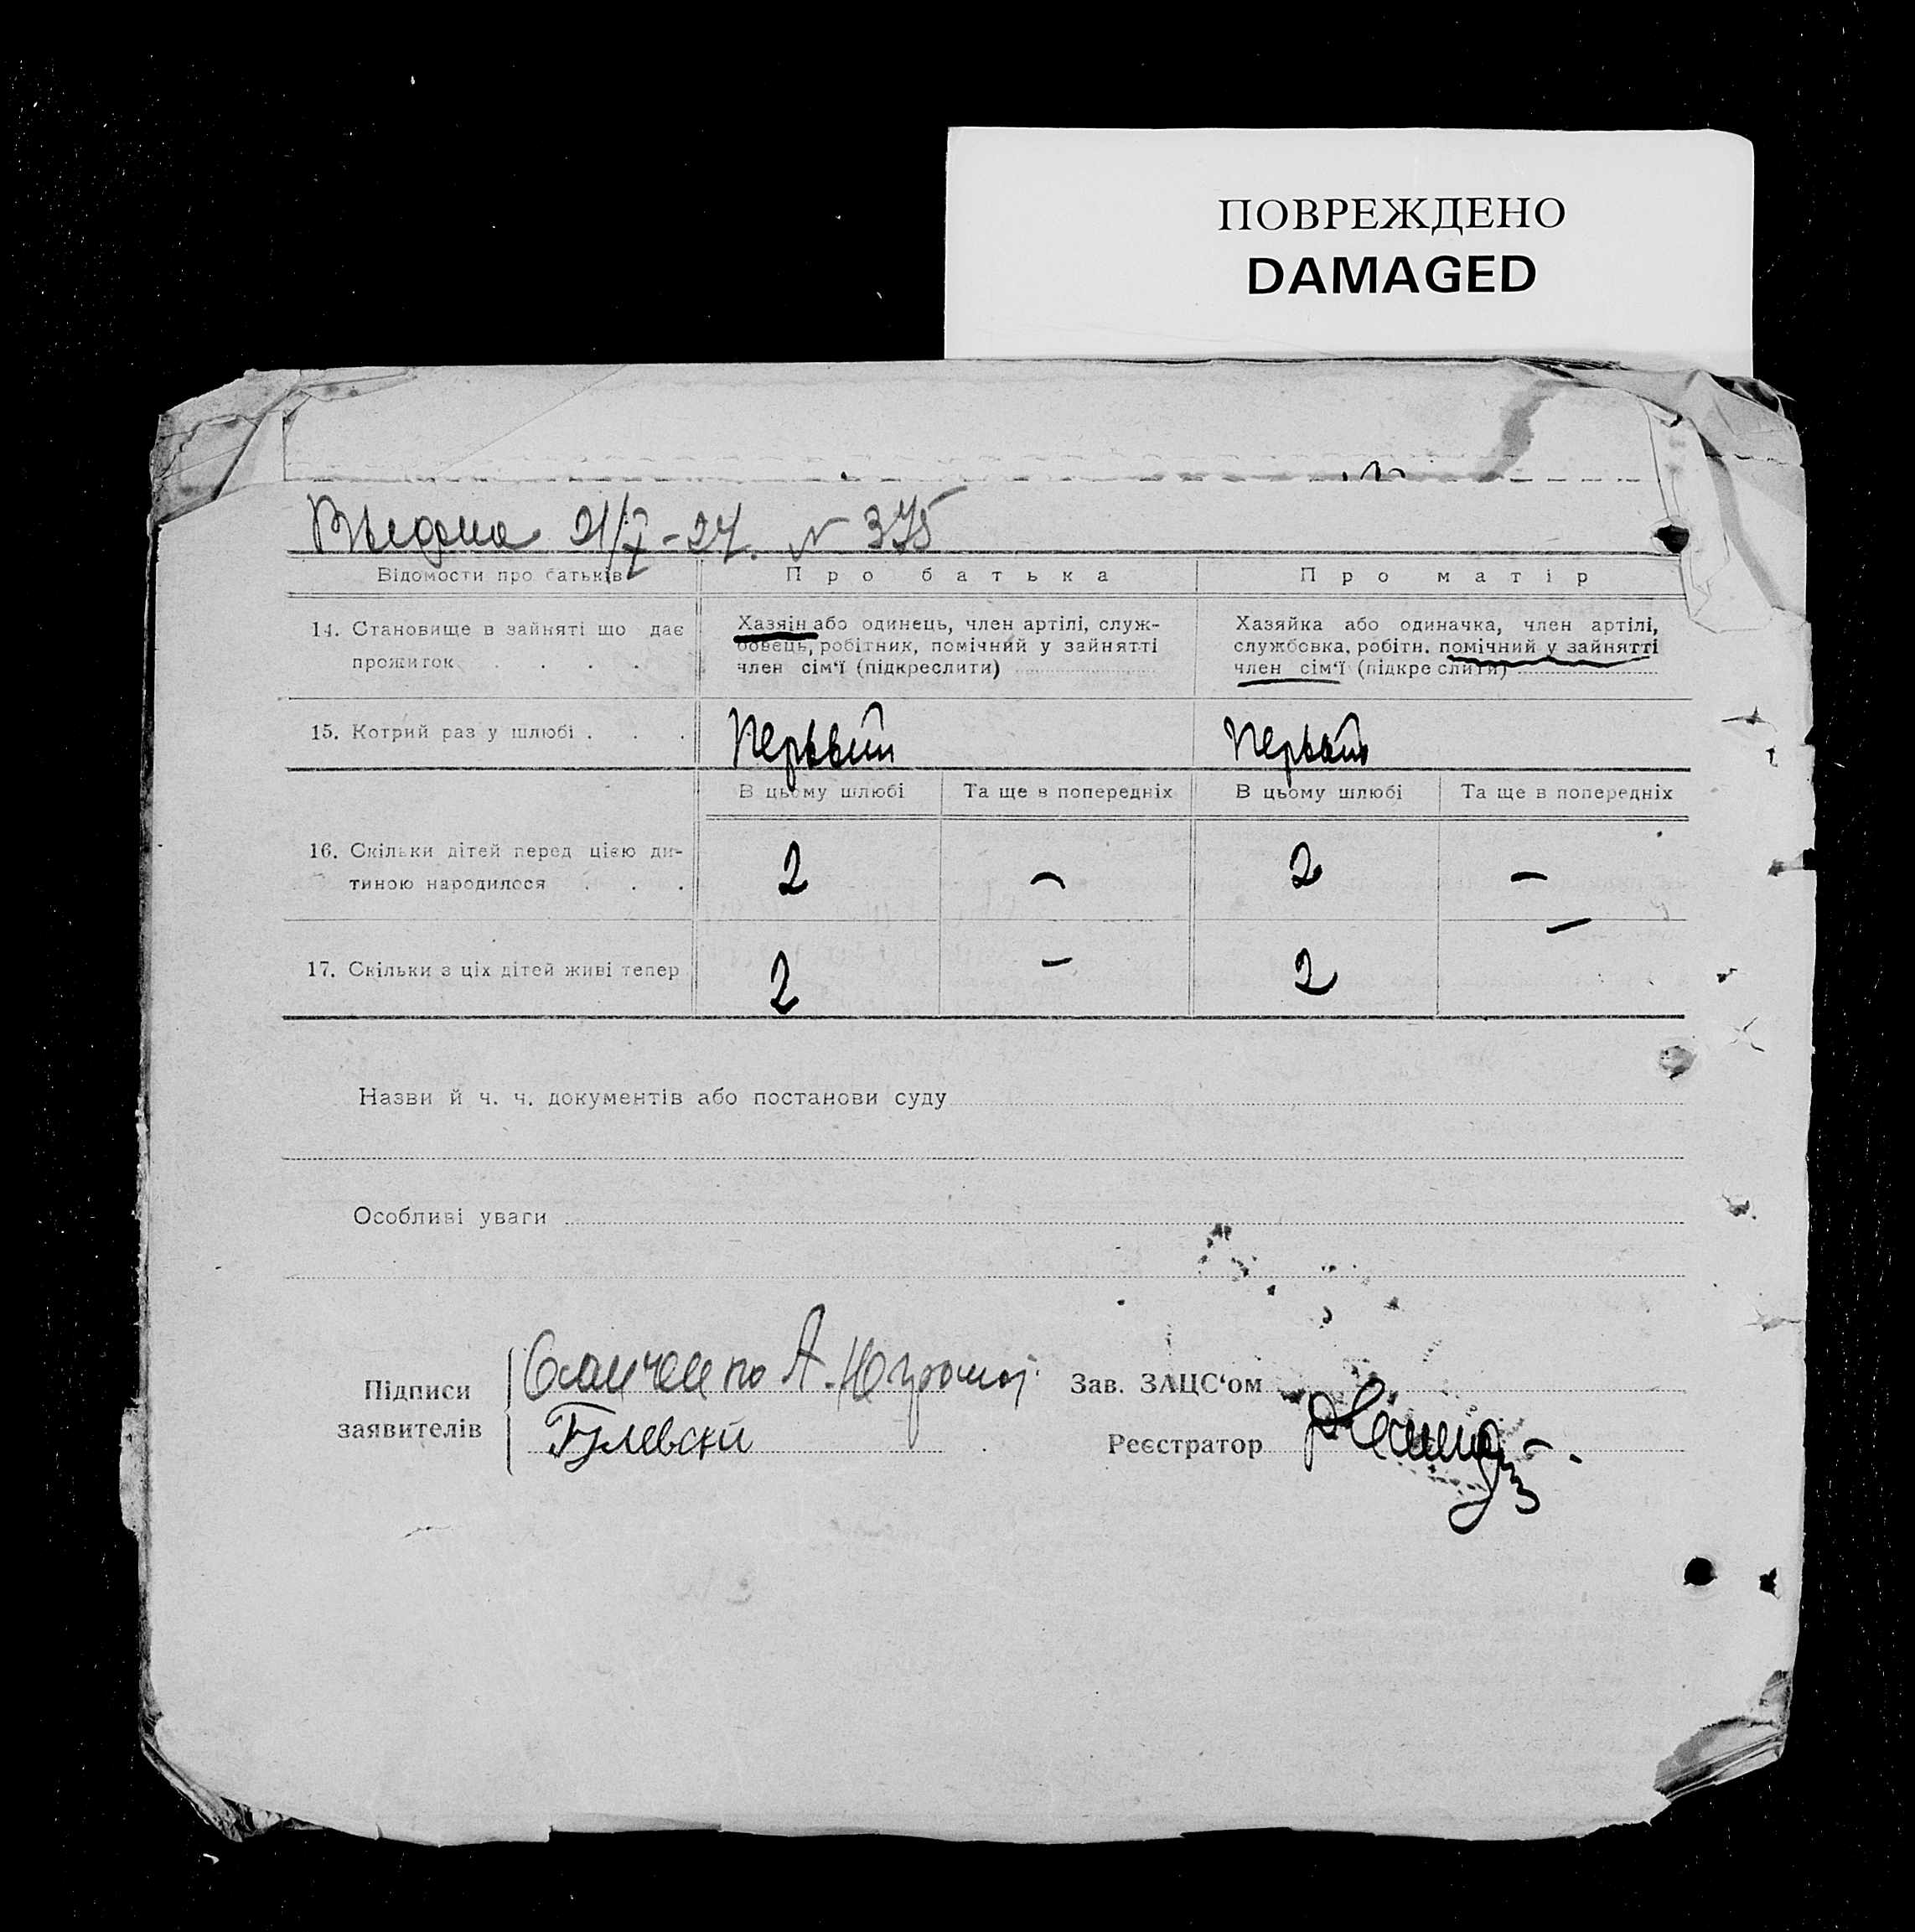 ПОВРЕЖДЕНО
DAMAGED
Выдана 21/7-24. № 375
Відомости про батьків
Про батька
Про матір
14. Становище в зайняті що дає
прожиток . . . .
Хазяін або одинець, член артілі, служ-
бовець, робітник, помічний у зайнятті
член сім'ї (підкреслити)
Хазяйка або одиначка, член артілі,
службовка, робітн. помічний у зайнятті
член сім'ї (підкреслити)
15. Котрий раз у шлюбі . . .
Первый
Первый
В цьому шлюбі
Та ще в попередніх
В цьому шлюбі
Та ще в попередніх
16. Скільки дітей перед цією ди-
тиною народилося . . .
2
–
2
–
17. Скільки з ціх дітей живі тепер
2
–
2
–
Назви й ч. ч. документів або постанови суду
Особливі уваги
Підписи
заявителів
А.
Гулевский
Зав. ЗАЦС'ом
Реєстратор